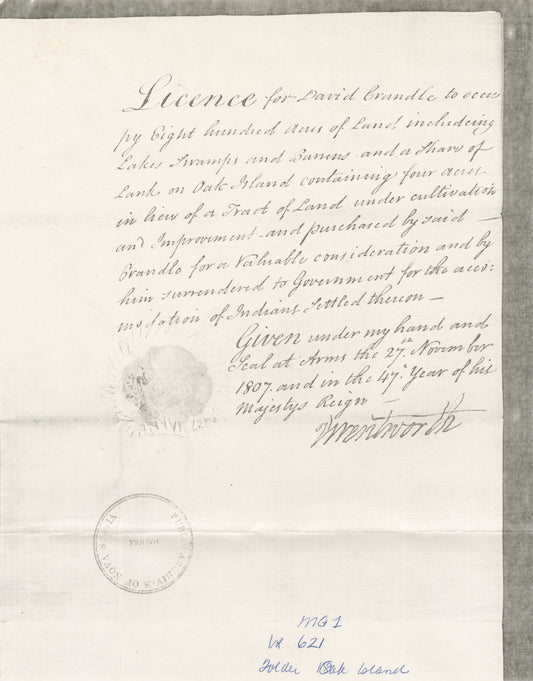 Licence for David Crandle to occu
py Eight hundred Acres of Land includeing
Lakes Swamps and Barrens and a Share of
Land on Oak Island containing four acres
in lieu of a Tract of Land under cultivation
and Improvement and purchased by said —
Crandle for a Valuable consideration and by
him surrendered to Government for the acco:
modation of Indians Settled thereon —
Given under my hand and
Seal at Arms the 27th November
1807. and in the 47th Year of his
Majestys Reign —
Wentworth
PUBLIC ARCHIVES OF NOVA SCOTIA
HALIFAX
MG1
Vol 621
Folder Oak Island